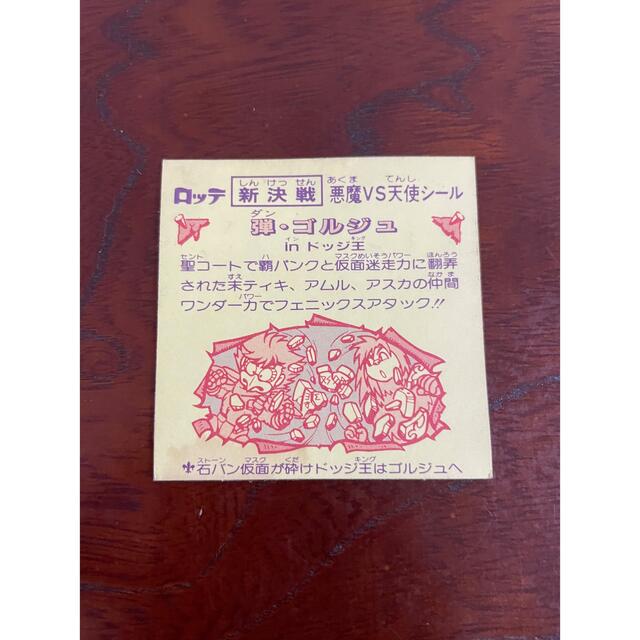 しん けっ せん あくま てんし
ロッテ 新決戦 悪魔VS天使シール
ダン
弾・ゴルジュ
イン キング
in ドッジ王
セント ハ マスクめいそうパワー ほんろう
聖コートで覇バンクと仮面迷走力に翻弄
すえ なかま
された末ティキ、アムル、アスカの仲間
パワー
ワンダー力でフェニックスアタック!!
ストーン マスク くだ キング
石バン仮面が砕けドッジ王はゴルジュへ